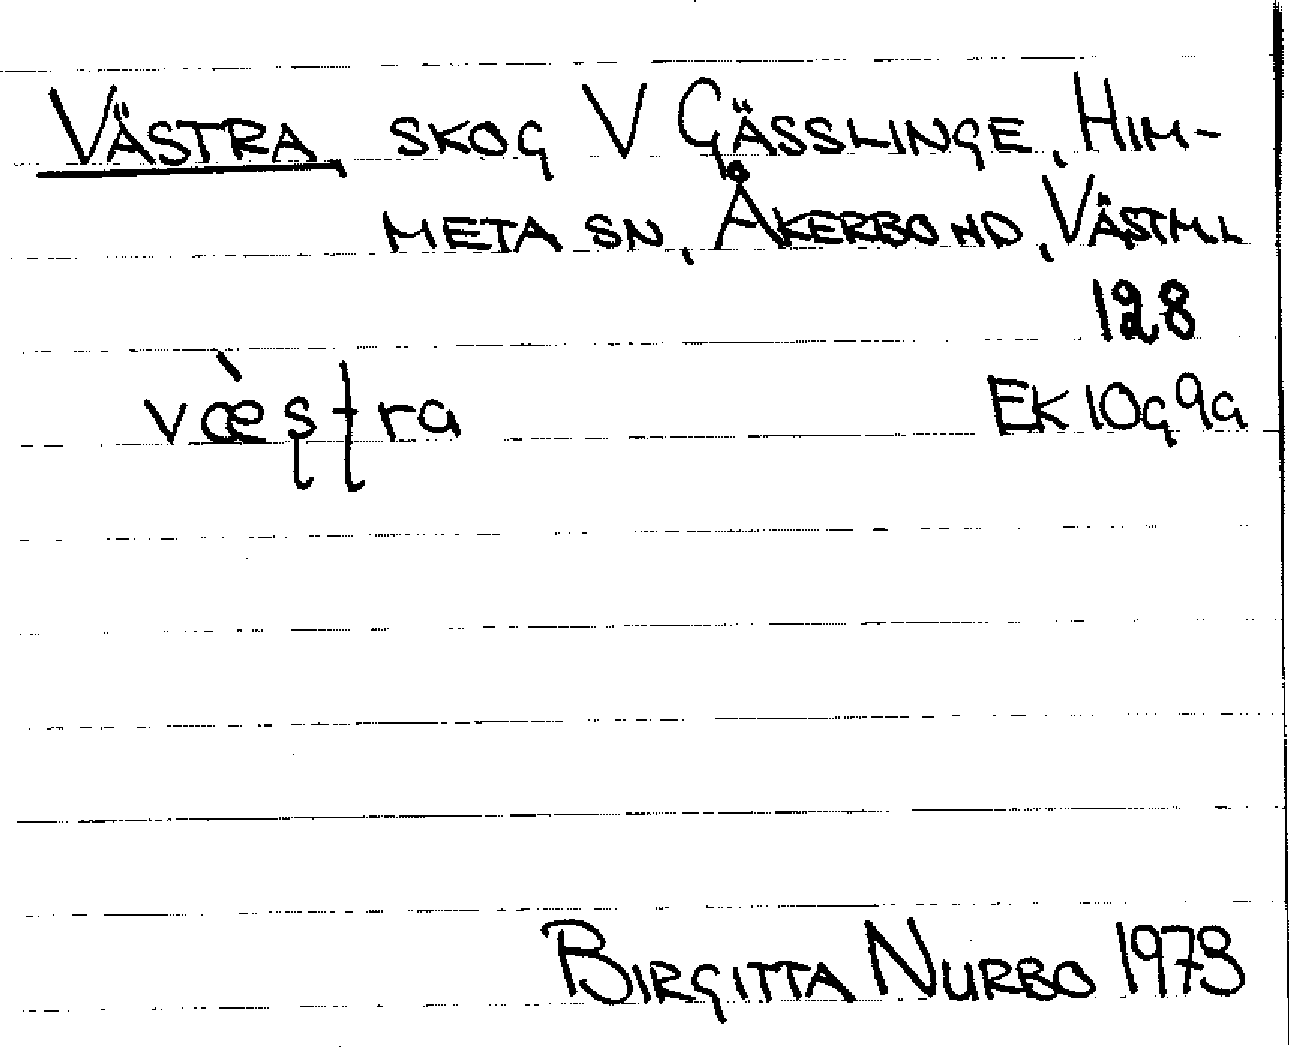 VÄSTRA, SKOG V GÄSSLINGE, HIM-
META SN, ÅKERBO HD, VÄSTML
128
væ̀ʂʈra EK 10G9a
BIRGITTA NURBO 1973